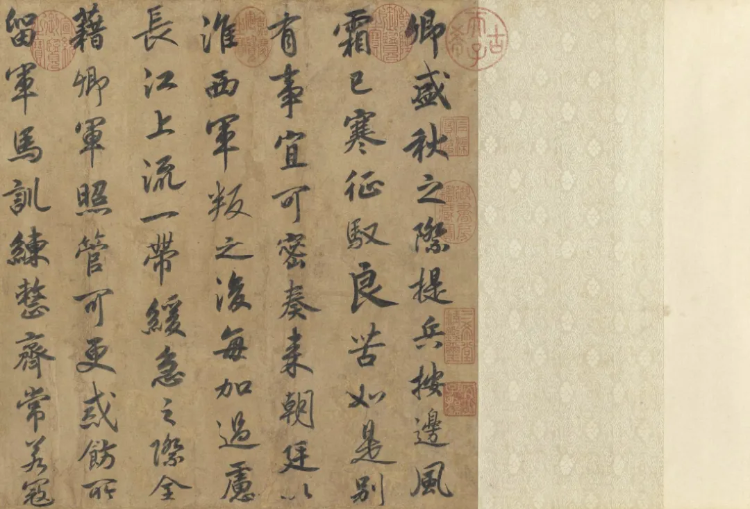 卿盛秋之際提兵按邊風
霜已寒征馭良苦如是別
有事宜可密奏来朝廷以
淮西軍叛之後每加過慮
長江上流一帶緩急之際全
藉卿軍照管可更戒飭所
留軍馬訓練整齊常若寇
古希天子